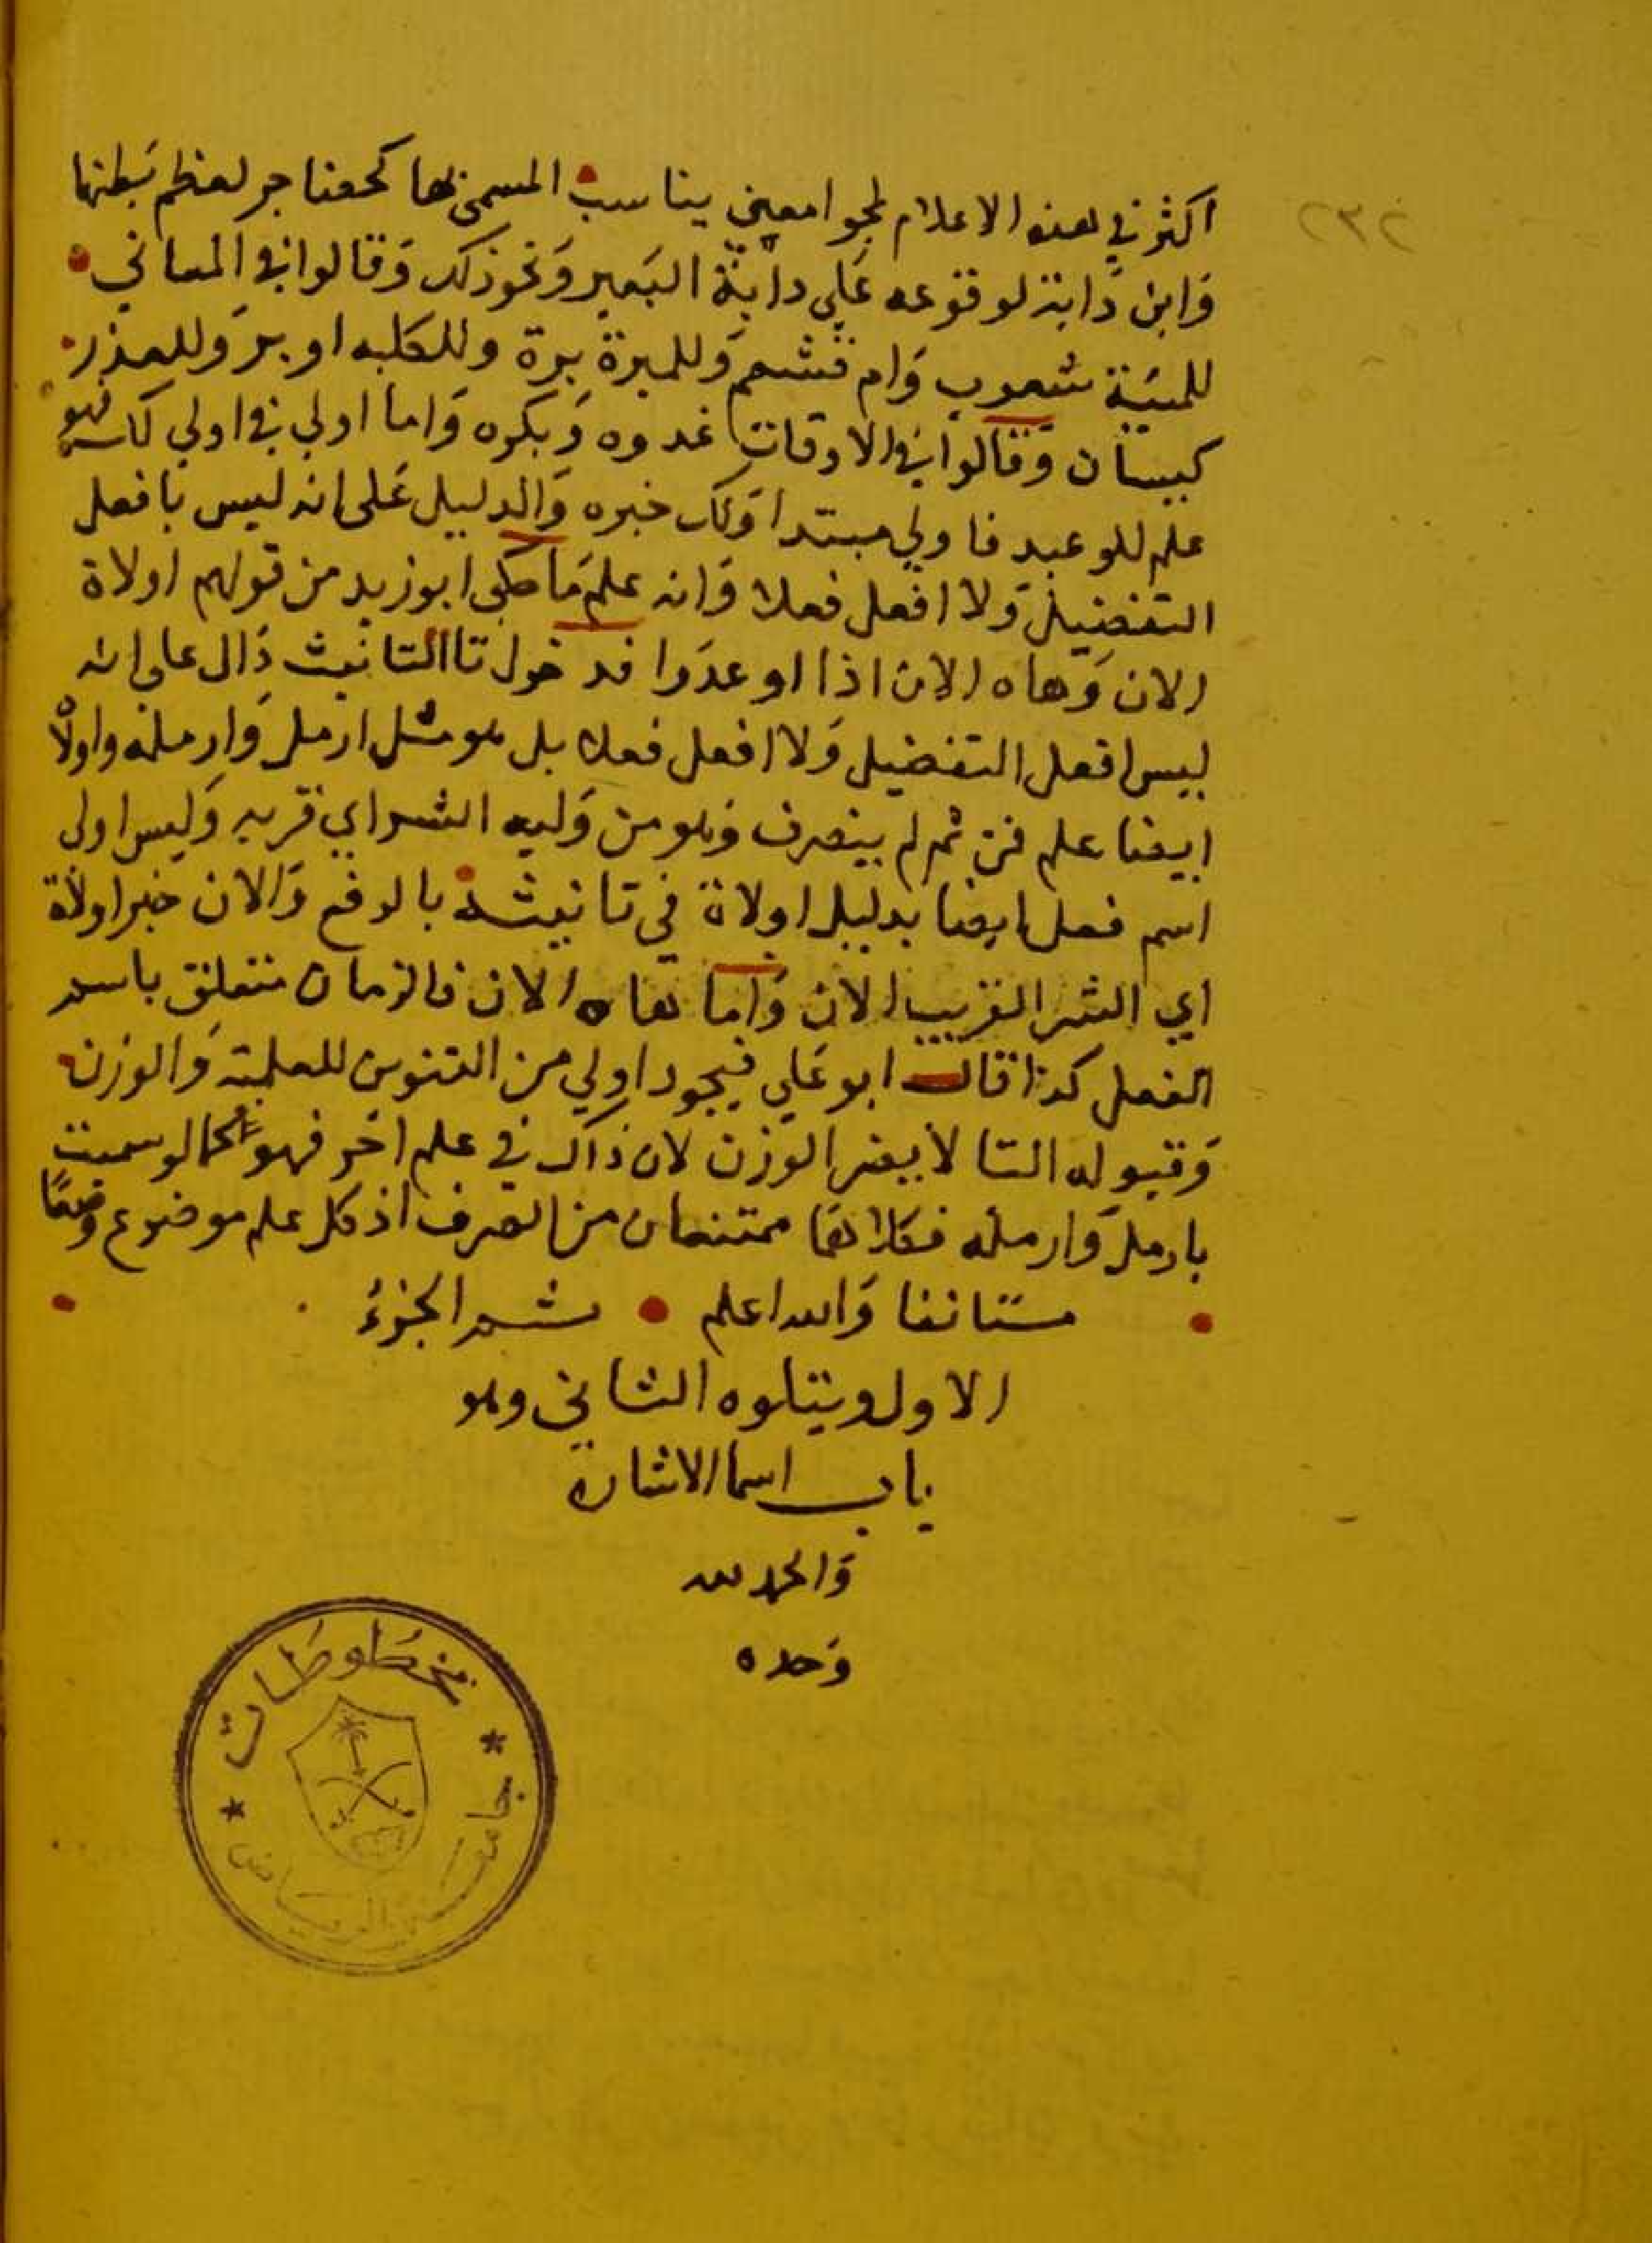 ٢٣٢
اكثر في هذه الاعلام لمحوا معني يناسب المسمى بها كحضاجر لعظم بطنها
وَابن دَاية لوقوعه عَلى داية البَعير وَنحو ذلك وَقالوا في المعاني
للمنية شعوب وَام قشعم وَللمبرة برة وللكلبه اوبر وَللعذر
كيسان وَقالوا في الاوقات غدوه وَبكره وَاما اولي في اولي لك فهو
علم للوعيد فاولي مبتدا وَلك خبره وَالدليل عَلى انه ليس بافعل
التفضيل وَلا افعل فعلا وَانه علم مَا حكى ابو زيد من قولهم اولاة
الان وَهاه الان اذا اوعدَوا فدخول تا التانيث دَال على انه
ليس افعل التفضيل وَلا افعل فعلا بل هو مثل ارمل وَارمله واولاة
ايضا علم فمن ثم لم ينصرف وَهو من وَليه الشر اي قربه وَليس اولى
اسم فعل ايضا بدليل اولاة في تانيثه بالرفع وَالان خبر اولاة
اي الشر القريب الان وَاما هاه الان فالزمان متعلق باسم
الفعل كذا قال ابو عَلي فيجود اولي من التنوين للعلمية وَالوزن
وَقبوله التا لا يضر الوَزن لان ذاك في علم اخر فهو كما لو سميت
بارمل وَارمله فكلاهما ممتنعان من الصرف اذ كل علم موضوع وضعًا
مستانفا وَالله اعلم تم الجزؤ
الاول ويتلوه الثاني وهو
باب اسما الاشارة
وَالحمد لله
وَحده
مخطوطات
جامعة الرياض